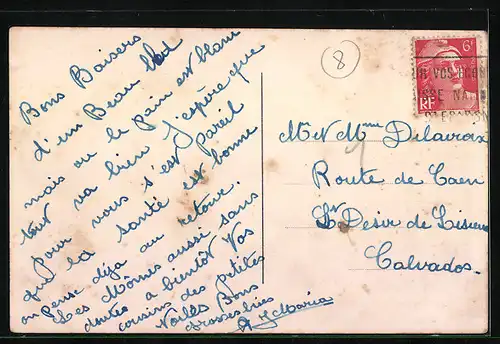 Bons Baisers
d'un Beau
mais ou le pain est blanc
tout va bien J'espère que
pour vous s'est pareil
que la santé est bonne
on pense déja au retour.
Les Mômes aussi sans
doutes a bientôt Vos
cousins des petites
Bons
grosses bises
Maria
8
6f
RF
UR VOS
SSE NA
Mr et Mme Delavoix
Route de Caen
St Desir de Lisieux
Calvados.